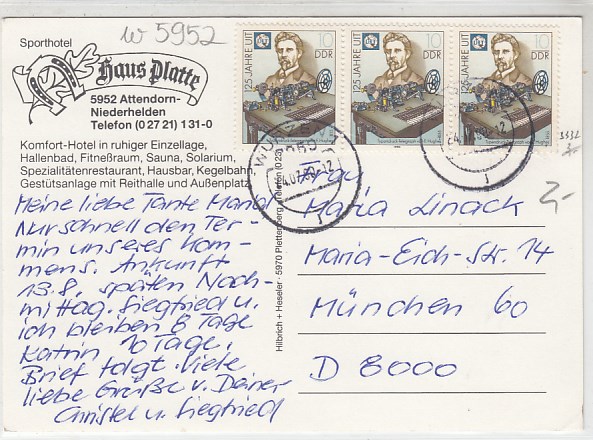 w 5952
Sporthotel
Haus Platte
5952 Attendorn-
Niederhelden
Telefon (0 27 21) 1 31-0
Komfort-Hotel in ruhiger Einzellage,
Hallenbad, Fitneßraum, Sauna, Solarium,
Spezialitätenrestaurant, Hausbar, Kegelbahn,
Gestütsanlage mit Reithalle und Außenplatz
Meine liebe Tante Maria
Nur schnell den Ter-
min unseres Kom-
mens. Ankunft
13.8. späten Nach-
mittag. Siegfried u.
ich bleiben 8 Tage
Katrin 10 Tage.
Brief folgt. Viele
liebe Grüße v. Deiner
Christel u. Siegfried
Hilbrich + Heseler · 5970 Plettenberg · Telefon (023
125 JAHRE UIT
10
DDR
125 JAHRE UIT
10
DDR
125 JAHRE UIT
10
DDR
WURZEN
2-
Frau
Maria Linack
Maria-Eich-Str. 14
München 60
D 8000